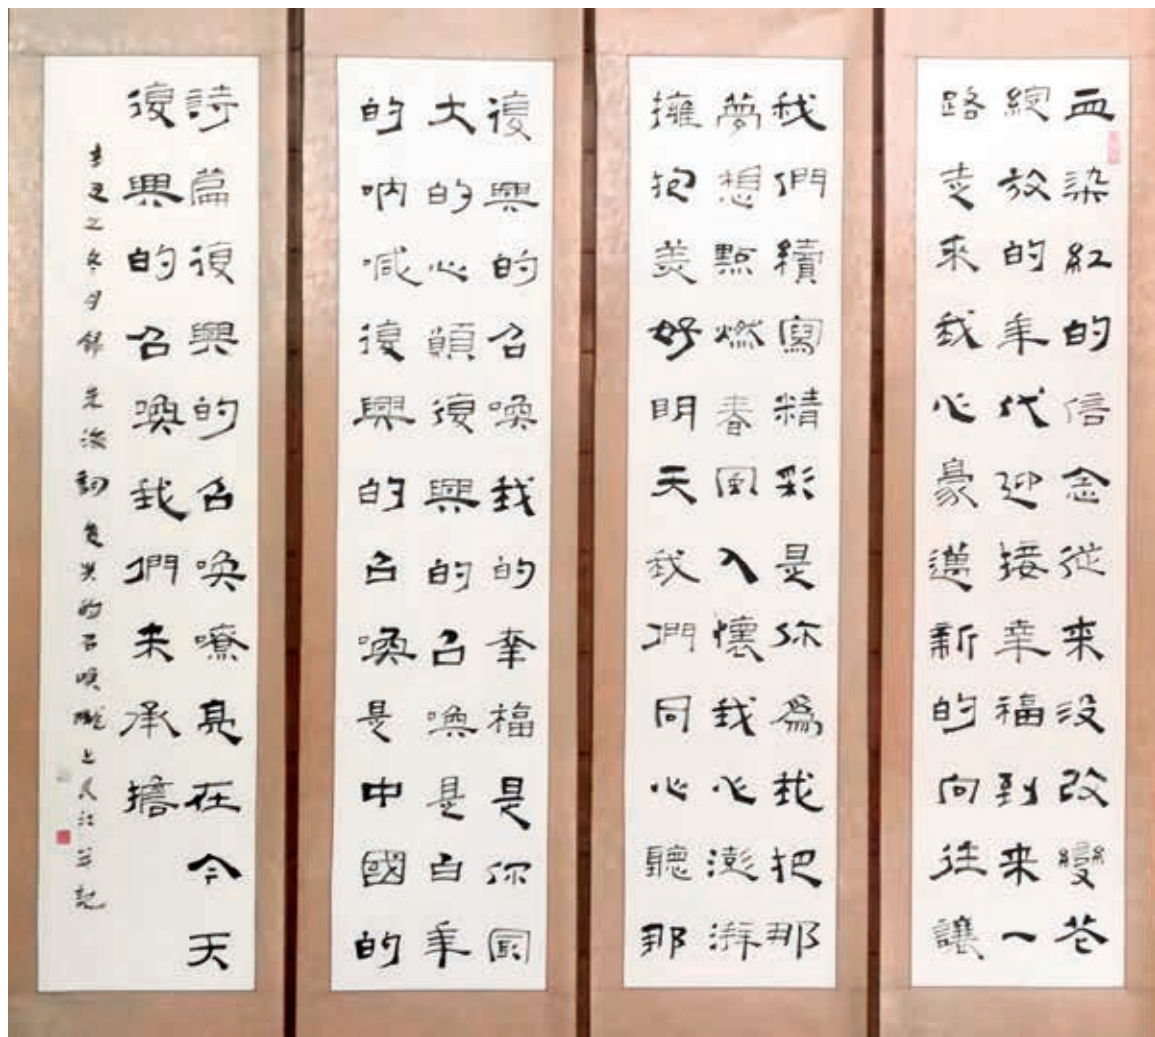 血染紅的信念從來沒改變花
綻放的年代迎接幸福到來一
路走來我心豪邁新的向往讓
我們續寫精彩是你為我把那
夢想點燃春風入懷我心澎湃
擁抱美好明天我們同心聽那
復興的召喚我的幸福是你國
大的心願復興的召喚是百年
的吶喊復興的召喚是中國的
詩篇復興的召喚嘹亮在今天
復興的召喚我們來承擔
辛丑之冬月錄 朱海詞復興的召喚 隴上民江並記